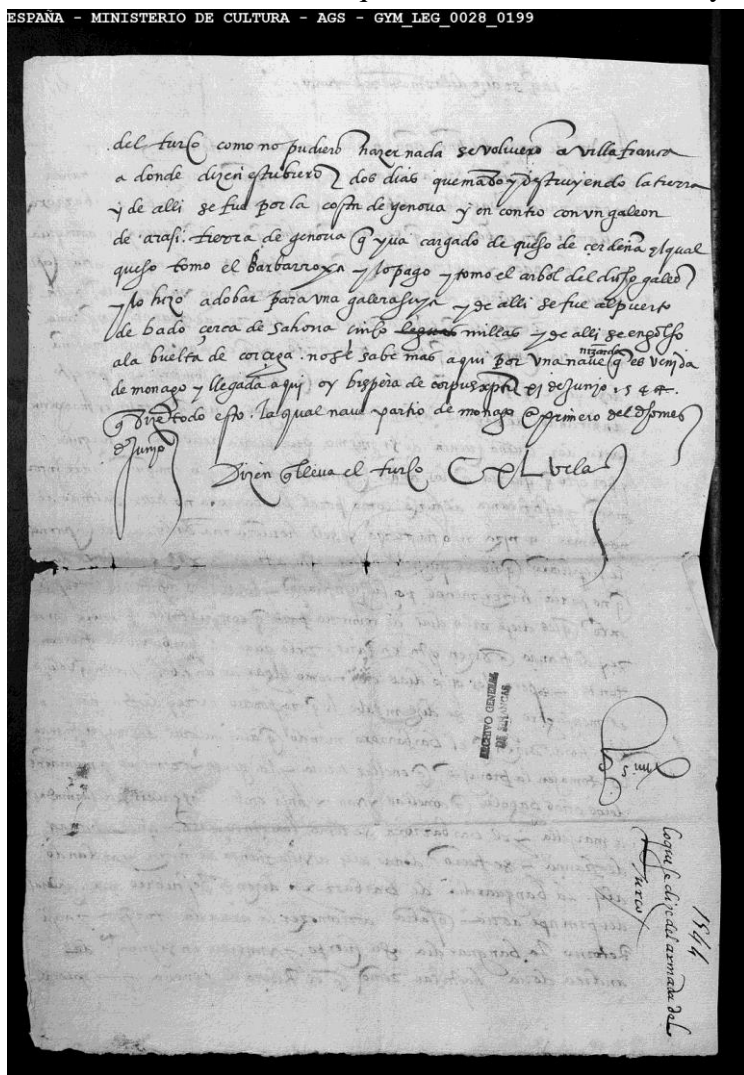 ESPAÑA - MINISTERIO DE CULTURA - AGS - GYM_LEG_0028_0199
del turco como no pudierō hazer nada se volvierō a villa franca
a donde dizen estubierō dos dias quemādo y destruyendo la tierra
y de alli se fue por la costa de genova y en contro con vn galeon
de arasi. tierra de genova q̄ yva cargado de queso de cerdeña el qual
queso tomo el barbarroxa y lo pago y tomo el arbol del dicho galeō
y lo hizo adobar para vna galera suya y de alli se fue al puerto
de bado çerca de sahona cinco leguas millas y de alli se engolfo
nizarda
ala buelta de corçega. no se sabe mas aqui por vna nave q̄ es venida
de monago y llegada aqui oy bispera de corpus xp̄i de Junio 1544.
q̄ dize todo esto. la qual nave partio de monago primero del dho mes
de Junio
Dizen q̄ lleva el turco CXL velas
ARCHIVO GENERAL
DE SIMANCAS
1544
lo que se dize del armada del
Turco